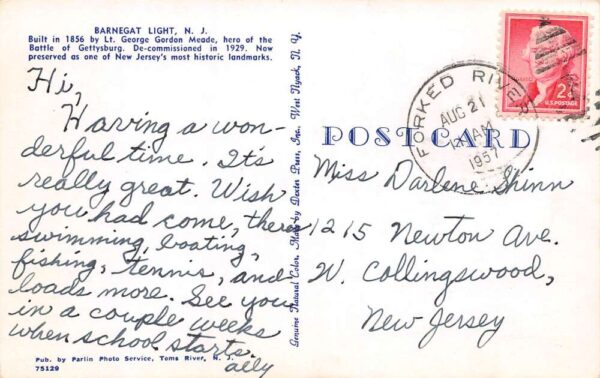 BARNEGAT LIGHT, N. J.
Built in 1856 by Lt. George Gordon Meade, hero of the
Battle of Gettysburg. De-commissioned in 1929. Now
preserved as one of New Jersey's most historic landmarks.
Hi,
Having a won-
derful time. It's
really great. Wish
you had come, there
swimming, boating,
fishing, tennis, and
loads more. See you
in a couple weeks
when school starts.
Pub. by Parlin Photo Service, Toms River, N. J.
75129
Genuine Natural Color, Made by Dexter Press, Inc., West Nyack, N. Y.
POST CARD
FORKED RIVER
AUG 21
AM
1957
2¢
U.S. POSTAGE
Miss Darlene Shinn
1215 Newton Ave.
W. Collingswood,
New Jersey